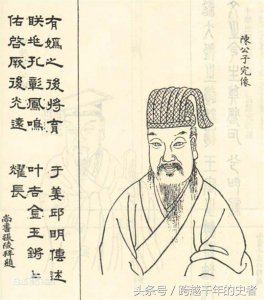 陳公子完像
有媯之後將育于姜邱明傳述
朕兆孔彰鳳鳴叶吉金玉鏘〻
佑啟厥後光遠耀長
尚書張陵拜題
头条号 / 跨越千年的史者